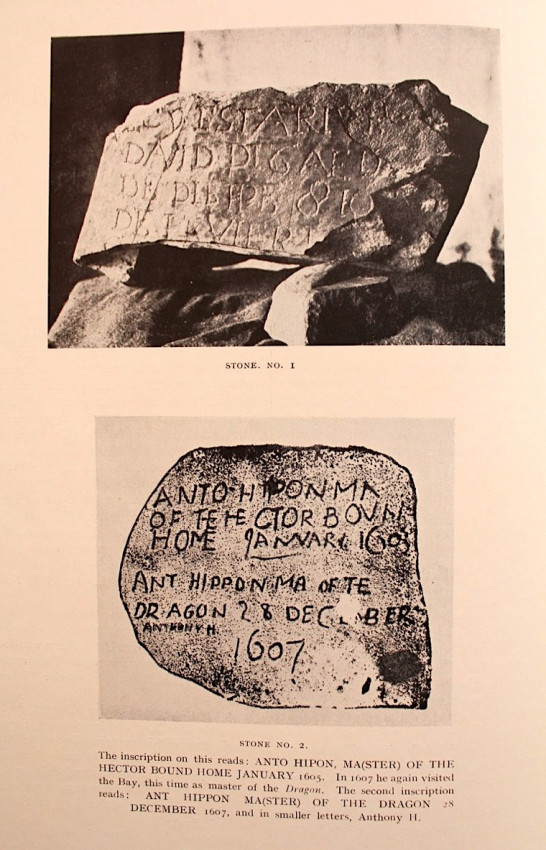 DAVID DIGAERD
STONE. NO. 1
ANTO HIPON MA
OF TE HECTOR BOUN
HOME JANVARY 1605
ANT HIPPON MA OF TE
DRAGON 28 DECEMBER
ANTHONY H.
1607
STONE NO. 2.
The inscription on this reads: ANTO HIPON, MA(STER) OF THE
HECTOR BOUND HOME JANUARY 1605. In 1607 he again visited
the Bay, this time as master of the Dragon. The second inscription
reads: ANT HIPPON MA(STER) OF THE DRAGON 28
DECEMBER 1607, and in smaller letters, Anthony H.